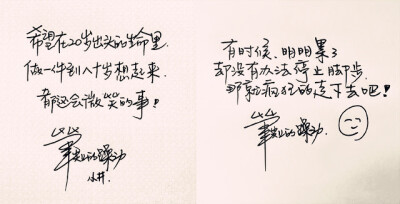 希望在20岁出头的生命里.
做一件到八十岁想起来.
都还会微笑的事!
毕业的躁动
小井.
有时候.明明累了
却没有办法停止脚步.
那就疯狂的走下去吧!
毕业的躁动.